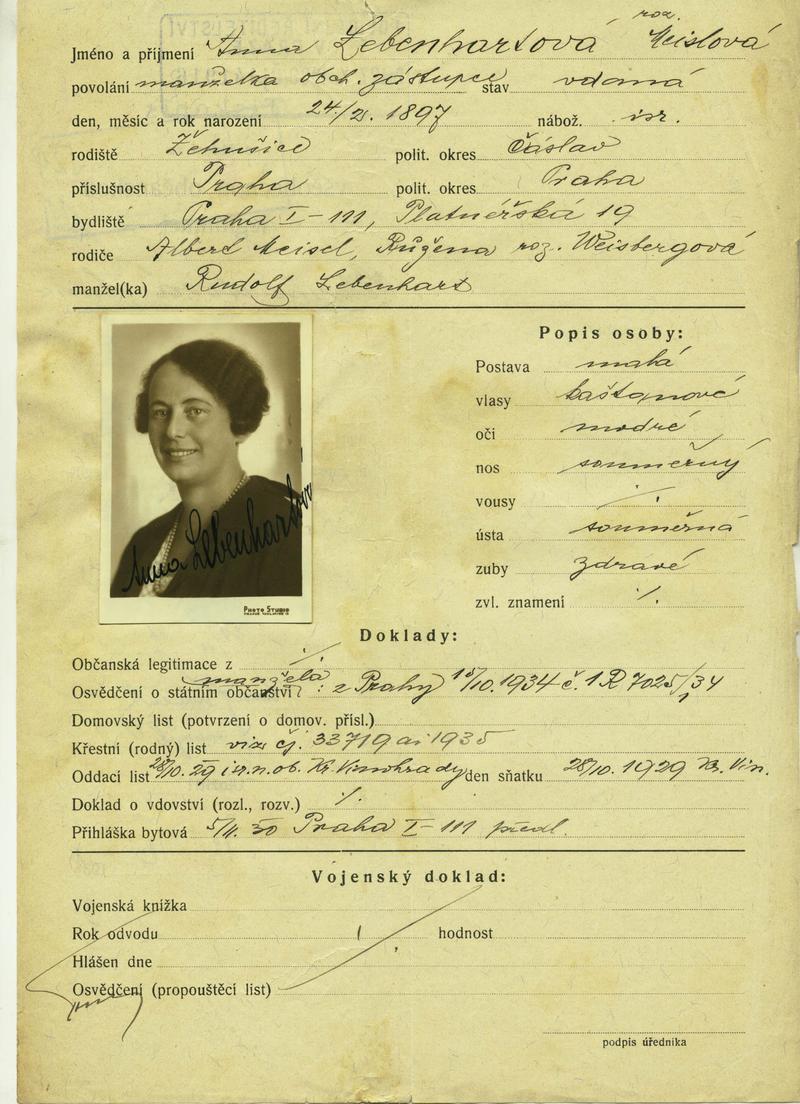 Jméno a příjmení Anna Lebenhartová roz. Meislová
povolání manželka obch. zástupce stav vdaná
den, měsíc a rok narození 24/ 1897 nábož. isr.
rodiště Žehušice polit. okres Čáslav
příslušnost Praha polit. okres Praha
bydliště Praha I-111, Platnéřská 19
rodiče Albert Meisel, Růžena roz. Weisbergová
manžel(ka) Rudolf Lebenhart
Popis osoby:
Postava malá
vlasy kaštanové
oči modré
nos souměrný
vousy ./.
ústa souměrná
zuby zdravé
zvl. znamení ./.
Anna Lebenhartová
Photo Studio
Doklady:
Občanská legitimace z ./.
manžela
Osvědčení o státním občanství: z Prahy 15/10. 1934 č. 1 R 7025/34
Domovský list (potvrzení o domov. přísl.)
Křestní (rodný) list viz čj. 33719 ai 1935
Oddací list 28/10. 29 isr. n. ob. Kr. Vinohrady den sňatku 28/10. 1929 Kr. Vin.
Doklad o vdovství (rozl., rozv.) ./.
Přihláška bytová 5/11. 30 Praha I-111 předl.
Vojenský doklad:
Vojenská knížka
Rok odvodu hodnost
Hlášen dne
Osvědčení (propouštěcí list)
podpis úředníka